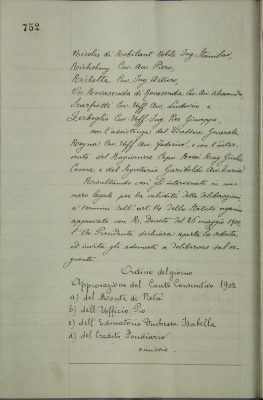 752
Nicolis di Robilant Nobile Ing. Stanislao,
Richelmy Cav. Avv. Piero,
Ricchetta Cav. Ing. Arturo,
Di Rovasenda di Rovasenda Cv. Avv. Alessandro
Scarfiotti Cav. Uff. Avv. Ludovico e
Zerboglio Cav. Uff. Ing. Pier Giuseppe,
con l'assistenza del Direttore Generale
Cav. Uff. Avv. Federico, e con l'inter-
vento del Ragioniere Capo Rossi Rag. Giulio
Cesare e del Segretario Garibaldi Avv.
Risultando così gli intervenuti in nu-
mero legale per la validità delle deliberazioni
a termini dell'art. 14 dello Statuto organico
approvato con R. Decreto del 25 maggio 1902
il Sr. Presidente dichiara aperta la seduta
ed invita gli adunati a deliberare sul se-
guente
Ordine del giorno
Approvazione del Conto Consuntivo 1902
a) del Monte di Pietà
b) dell'Ufficio Pio
c) dell'Educatorio Duchessa Isabella
d) del Credito Fondiario
omissis